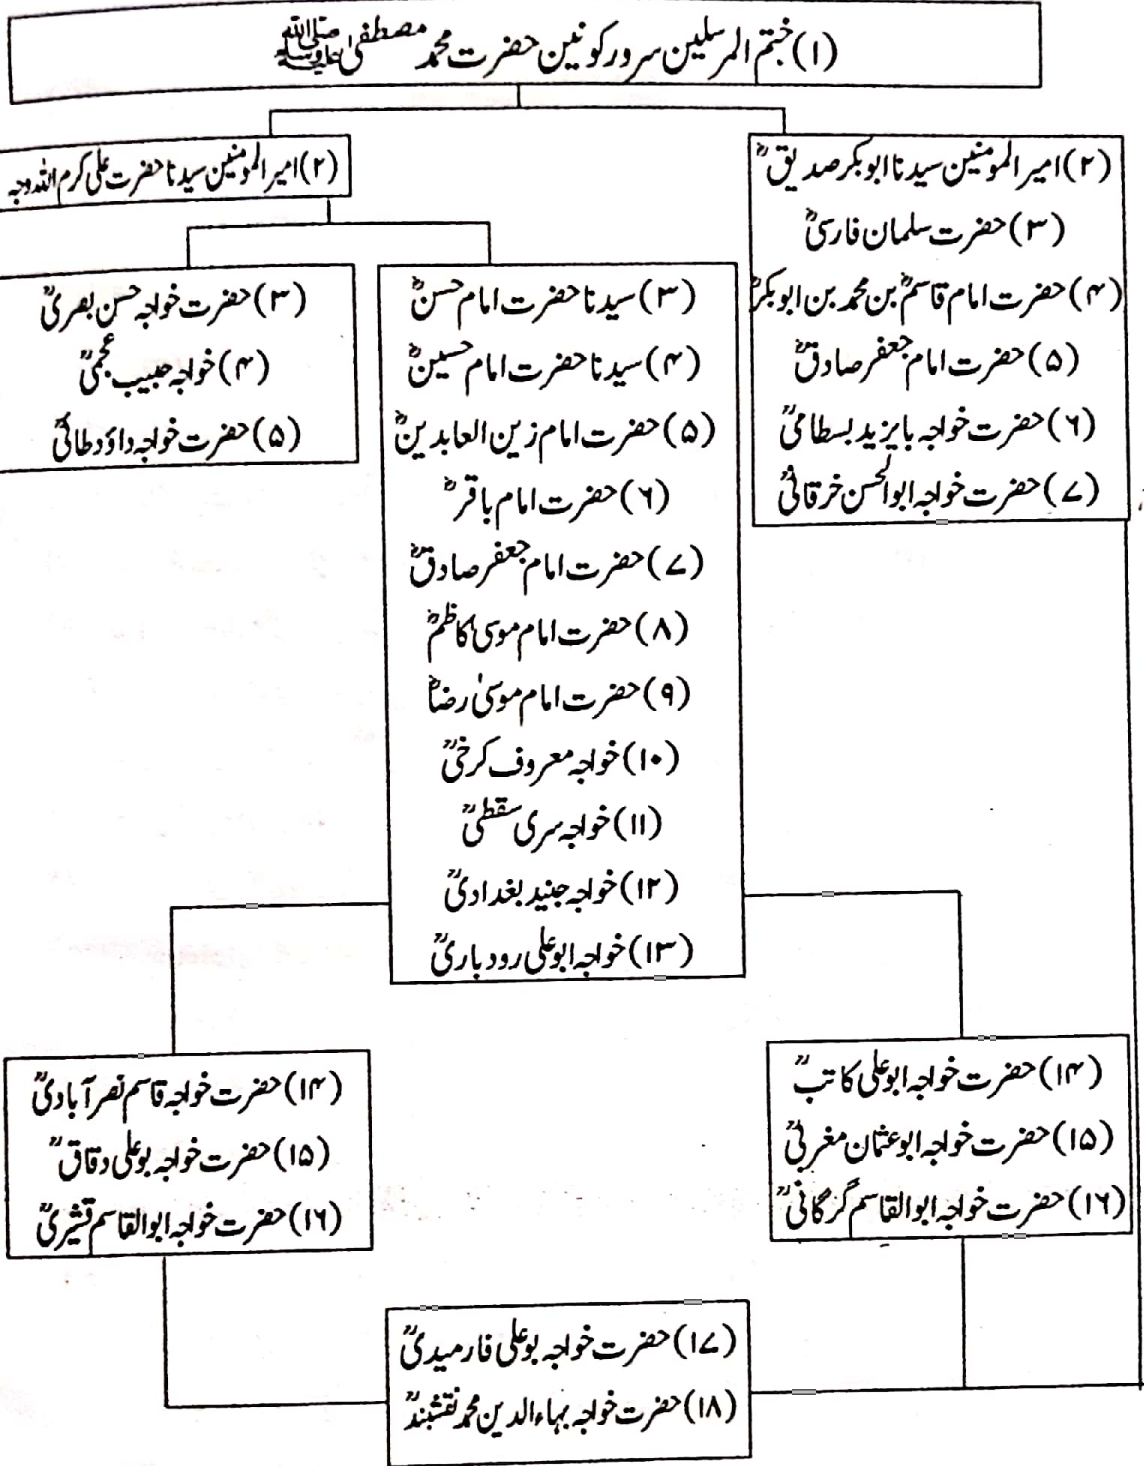 (۱) ختم المرسلین سرور کونین حضرت محمد مصطفیٰ ﷺ
(۲) امیر المومنین سیدنا ابوبکر صدیقؓ
(۳) حضرت سلمان فارسیؓ
(۴) حضرت امام قاسمؓ بن محمد بن ابوبکرؓ
(۵) حضرت امام جعفر صادقؓ
(۶) حضرت خواجہ بایزید بسطامیؒ
(۷) حضرت خواجہ ابوالحسن خرقانیؒ
(۲) امیر المومنین سیدنا حضرت علی کرم اللہ وجہ
(۳) سیدنا حضرت امام حسنؓ
(۴) سیدنا حضرت امام حسینؓ
(۵) حضرت امام زین العابدینؓ
(۶) حضرت امام باقرؓ
(۷) حضرت امام جعفر صادقؓ
(۸) حضرت امام موسیٰ کاظمؓ
(۹) حضرت امام موسیٰ رضاؓ
(۱۰) خواجہ معروف کرخیؒ
(۱۱) خواجہ سری سقطیؒ
(۱۲) خواجہ جنید بغدادیؒ
(۱۳) خواجہ ابوعلی رودباریؒ
(۳) حضرت خواجہ حسن بصریؒ
(۴) خواجہ حبیب عجمیؒ
(۵) حضرت خواجہ داؤد طائیؒ
(۱۴) حضرت خواجہ ابوعلی کاتبؒ
(۱۵) حضرت خواجہ ابوعثمان مغربیؒ
(۱۶) حضرت خواجہ ابوالقاسم گرگانیؒ
(۱۴) حضرت خواجہ قاسم نصرآبادیؒ
(۱۵) حضرت خواجہ بوعلی دقاقؒ
(۱۶) حضرت خواجہ ابوالقاسم قشیریؒ
(۱۷) حضرت خواجہ بوعلی فارمیدیؒ
(۱۸) حضرت خواجہ بہاءالدین محمد نقشبندؒ